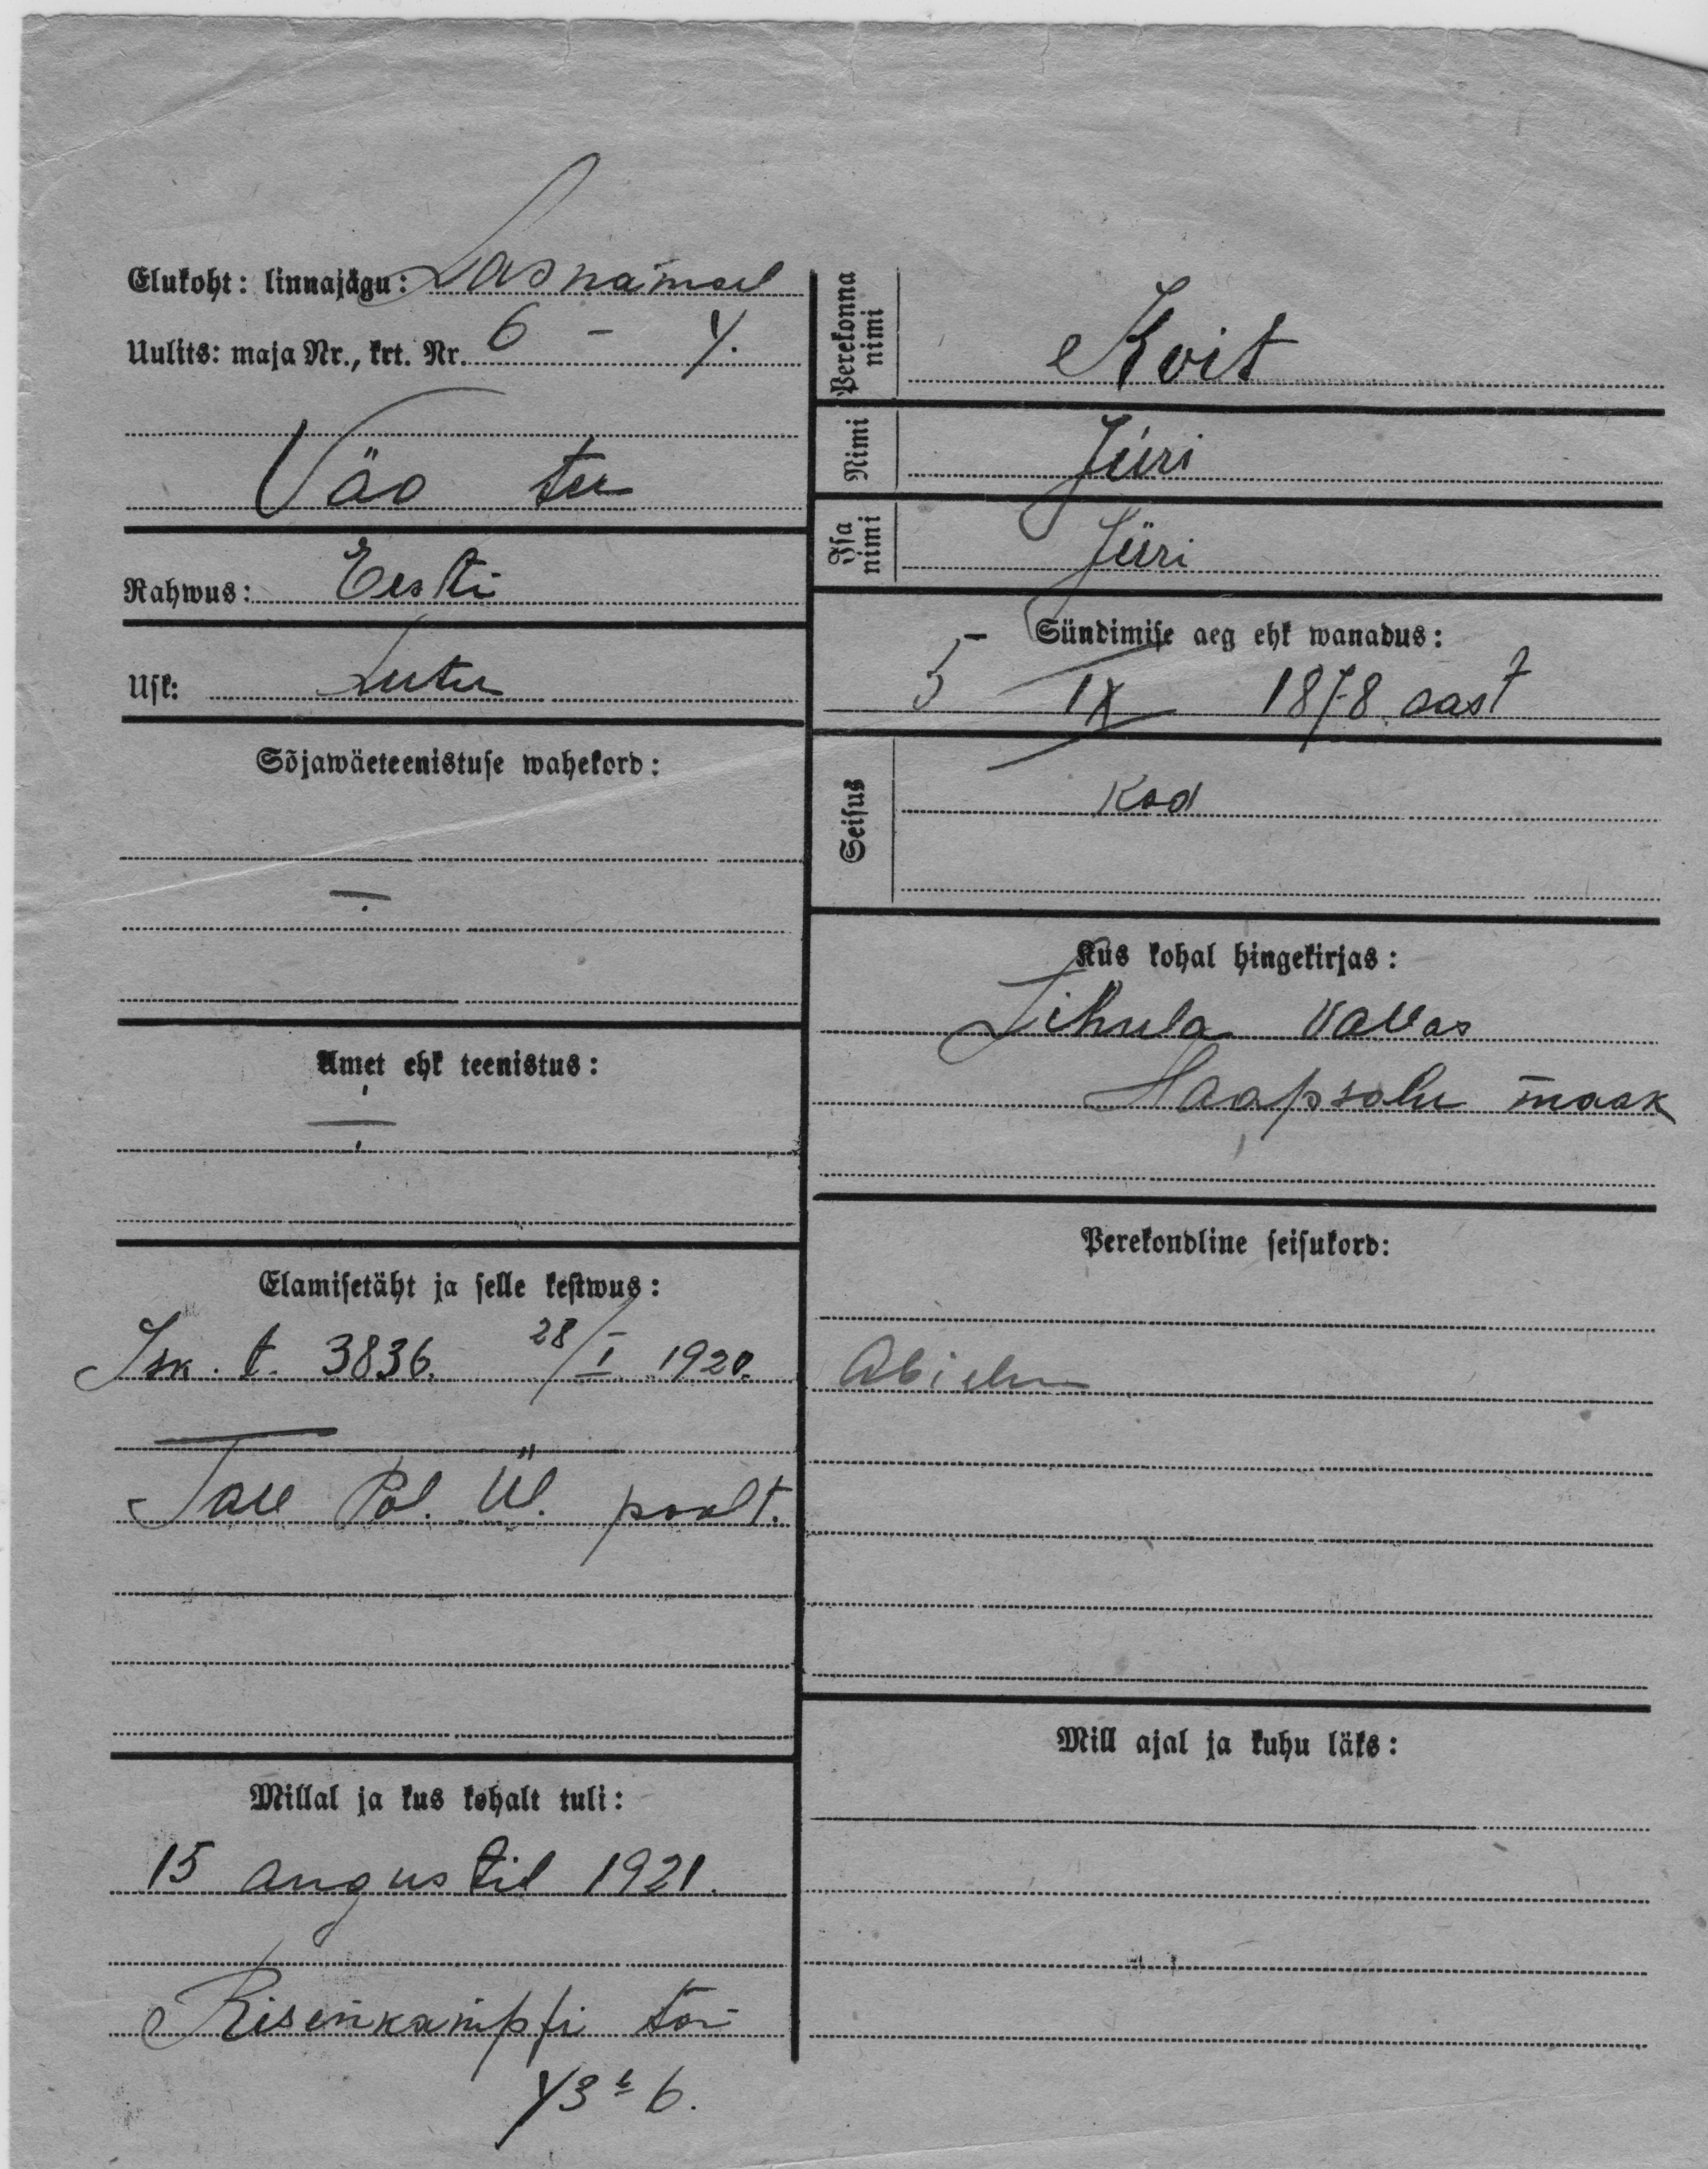 Elukoht: linnajagu: Lasnamäel
Uulits: maja Nr., krt. Nr. 6 – 4.
Väo tee
Rahwus: Eesti
Usk: Luter
Sõjawäeteenistuse wahekord:
—
Amet ehk teenistus:
—
Elamisetäht ja selle kestwus:
Isk. t. 3836. 28/I 1920.
Tall Pol. Ül. poolt.
Millal ja kus kohalt tuli:
15 augustil 1921.
Risenkampfi tän
43 b 6.
Perekonna nimi Koit
Nimi Jüri
Isa nimi Jüri
Sündimise aeg ehk wanadus:
5 IX 1878 aast
Seisus Kod
Kus kohal hingekirjas:
Lihula vallas
Haapsalu maak
Perekondline seisukord:
Abielu
Mill ajal ja kuhu läks: